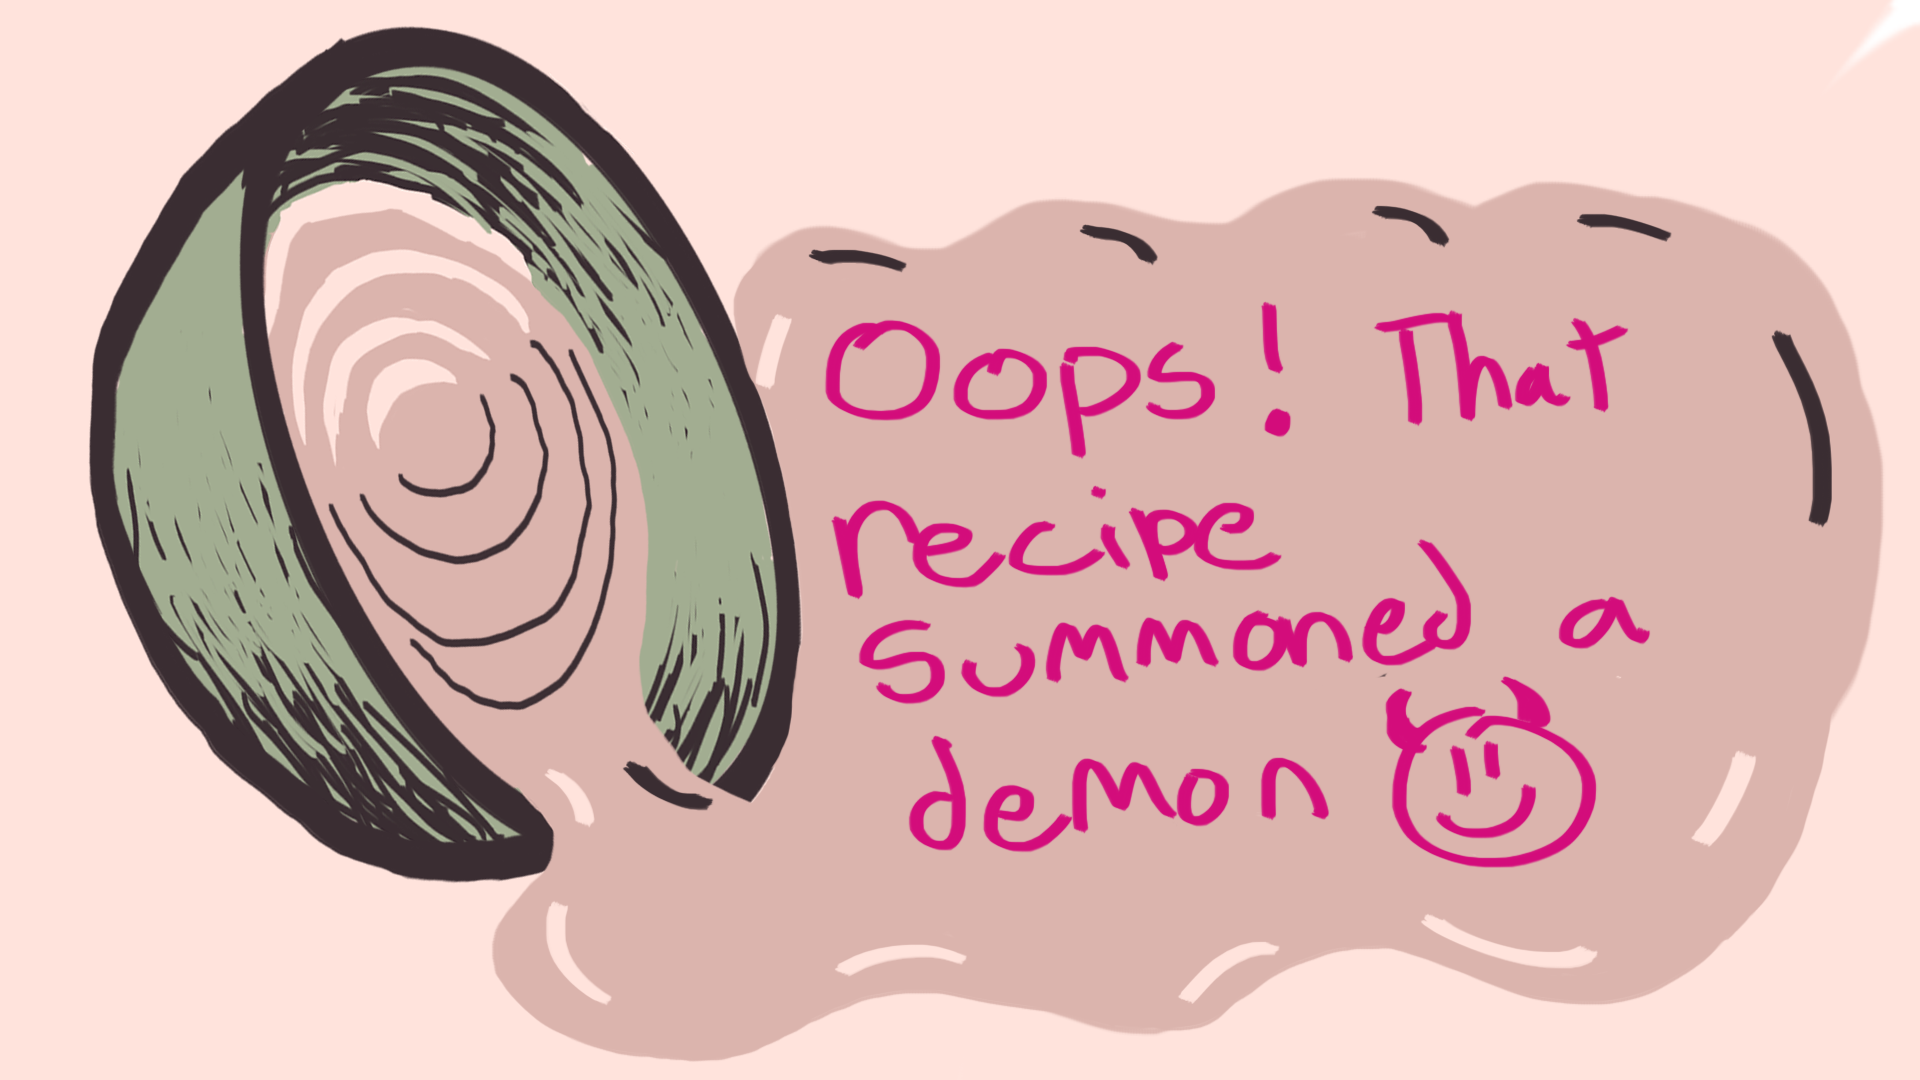 Oops! That
recipe
summoned a
demon